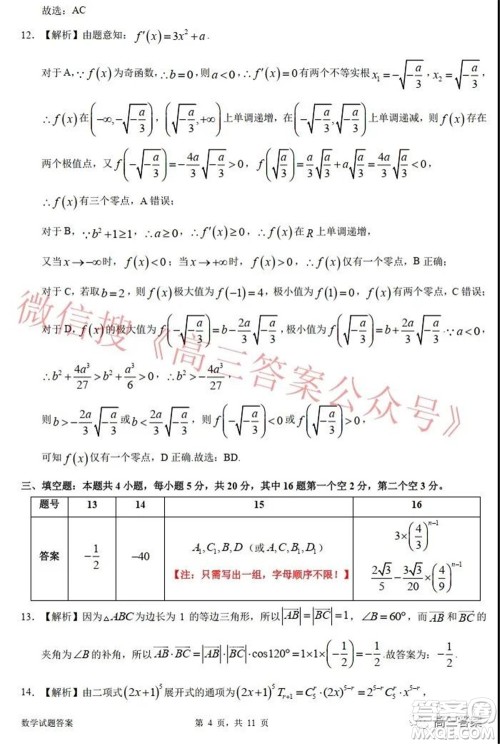 故选：AC
12. 【解析】由题意知：f′(x)=3x²+a.
对于 A,∵f(x)为奇函数,∴b=0,则 a<0,∴f′(x)=0有两个不等实根 x₁=-√(-a/3), x₂=√(-a/3),
∴f(x)在(-∞,-√(-a/3)), (√(-a/3),+∞)上单调递增，在(-√(-a/3),√(-a/3))上单调递减，则 f(x)存在
两个极值点，又 f(-√(-a/3))=-4a/3 √(-a/3)>0, f(√(-a/3))=a/3 √(-a/3)+a√(-a/3)=4a/3 √(-a/3)<0,
∴f(x)有三个零点，A 错误；
对于 B,∵b²+1≥1,∴a≥0,∴f′(x)≥0,∴f(x)在 R 上单调递增，
又当 x→-∞时，f(x)<0；当 x→+∞时，f(x)>0,∴f(x)仅有一个零点，B 正确；
对于 C,若取 b=2，则 f(x)极大值为 f(-1)=4，极小值为 f(1)=0，f(x)有两个零点，C 错误；
对于 D,f(x)的极大值为 f(-√(-a/3))=b-2a/3 √(-a/3)，极小值为 f(√(-a/3))=b+2a/3 √(-a/3).∵a<0,
∴b²+4a³/27>a³/6>0,∴b²>-4a³/27,
则 b>-2a/3 √(-a/3)或 b<2a/3 √(-a/3)，从而 f(√(-a/3))>0或 f(-√(-a/3))<0，可知
f(x)仅有一个零点，D 正确.故选：BD.
三、填空题：本题共 4 小题，每小题 5 分，共 20 分，其中 16 题第一个空 2 分，第二个空 3 分。
题号 13 14 15 16
答案 -1/2 -40 A₁,C₁,B,D（或 A,C,B₁,D₁） 3×(4/3)ⁿ⁻¹
【注：只需写出一组，字母顺序不限！】 2√3/5-3√3/20×(4/9)ⁿ⁻¹
13. 【解析】因为△ABC 为边长为 1 的等边三角形，所以|AB|=|BC|=1，∠B=60°，而 AB 和 BC 的
夹角为∠B 的补角，所以 AB·BC=|AB|·|BC|·cos120°=1×1×(-1/2)=-1/2.故答案为：-1/2.
14. 【解析】由二项式(2x+1)⁵展开式的通项 Tᵣ₊₁=C₅ʳ·(2x)⁵⁻ʳ=C₅ʳ·2⁵⁻ʳ·x⁵⁻ʳ,
数学试题答案 第 4 页，共 11 页
微信搜《高三答案公众号》
高三答案